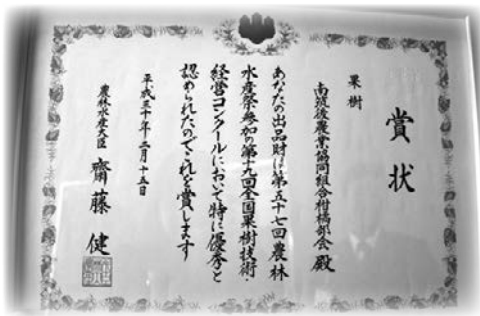 賞状
果樹
南筑後農業協同組合柑橘部会 殿
あなたの出品財は第五十七回農林
水産祭参加の第十九回全国果樹技術・
経営コンクールにおいて特に優秀と
認められたのでこれを賞します
平成三十年二月十五日
農林水産大臣 齋藤 健